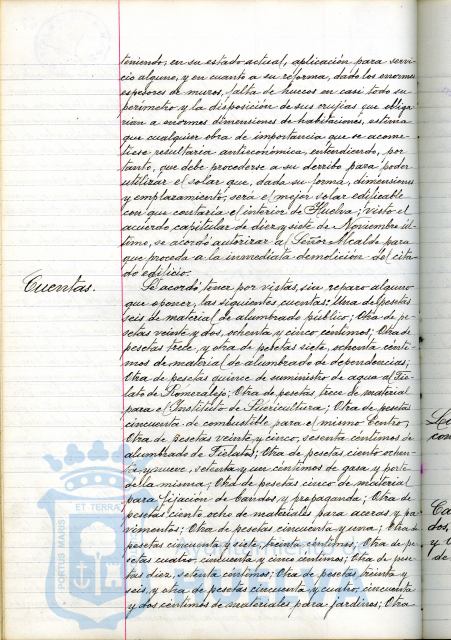 teniendo, en su estado actual, aplicación para servi-
cio alguno, y en cuanto a su reforma, dado los enormes
espesores de muros, falta de huecos en casi todo su
perímetro y la disposición de sus crujías que obliga-
rían a enormes dimensiones de habitaciones, estima
que cualquier obra de importancia que se acome-
tiese resultaría antieconómica, entendiendo, por
tanto, que debe procederse a su derribo para poder
utilizar el solar que, dada su forma, dimensiones
y emplazamiento, será el mejor solar edificable
con que contaría el interior de Huelva; visto el
acuerdo capitular de diez y siete de Noviembre úl-
timo, se acordó autorizar al Señor Alcalde para
que proceda a la inmediata demolición del cita-
do edificio.
Cuentas.
Se acordó, tener por vistas, sin reparo alguno
que oponer, las siguientes cuentas: Una de pesetas
seis de material de alumbrado público; Otra de pe-
setas veinte y dos, ochenta y cinco céntimos; Otra de
pesetas trece, y otra de pesetas siete, ochenta cénti-
mos de material de alumbrado de dependencias;
Otra de pesetas quince de suministro de agua al Fie-
lato de Romeralejo; Otra de pesetas trece de material
para el Instituto de Puericultura; Otra de pesetas
cincuenta de combustible para el mismo Centro;
Otra de pesetas veinte y cinco, sesenta céntimos de
alumbrado de Fielatos; Otra de pesetas ciento ochen-
ta y nueve, setenta y un céntimos de gasa y porte
de la misma; Otra de pesetas cinco de material
para fijación de bandos y propaganda; Otra de
pesetas ciento ocho de materiales para aceras y pa-
vimentos; Otra de pesetas cincuenta y una; Otra de
pesetas cincuenta y siete, treinta céntimos; Otra de pe-
setas cuatro, cincuenta y cinco céntimos; Otra de pese-
tas diez, setenta céntimos; Otra de pesetas treinta y
seis, y otra de pesetas cincuenta y cuatro, cincuenta
y dos céntimos de materiales para Jardines; Otra
ET TERRA
PORTUS MARIS
Ayuntamiento de